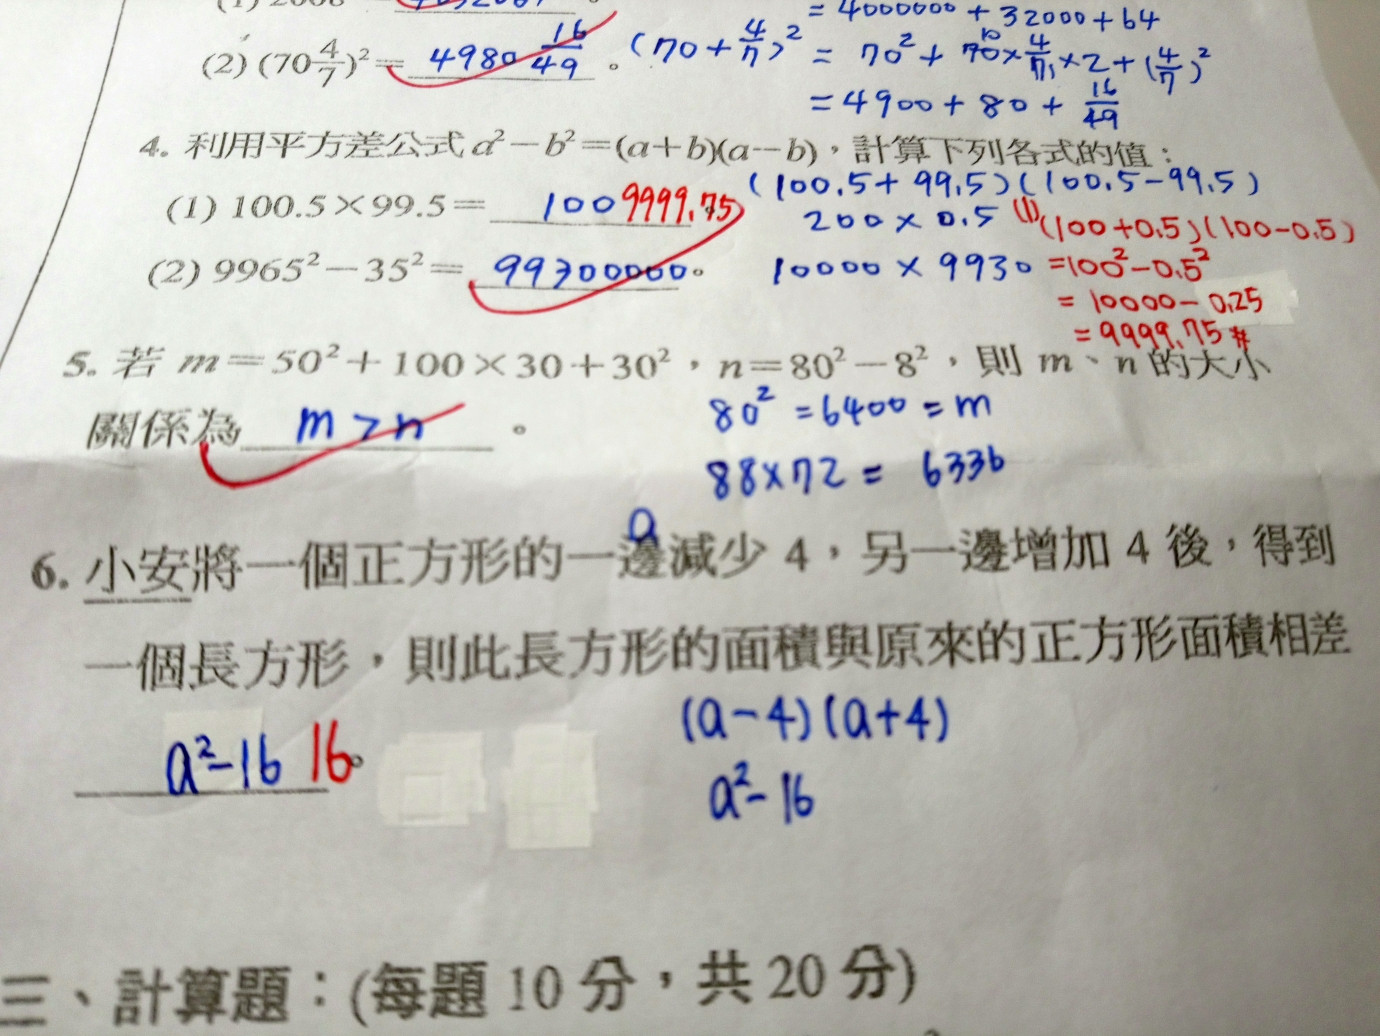 = 4000000 + 32000 + 64
(2) (70 4/7)² = 4980 16/49 。 (70 + 4/7)² = 70² + 70 × 4/7 × 2 + (4/7)²
= 4900 + 80 + 16/49
4. 利用平方差公式 a² − b² = (a+b)(a−b)，計算下列各式的值：
(1) 100.5 × 99.5 = 100 9999.75 。 (100.5 + 99.5)(100.5 − 99.5)
200 × 0.5 (1) (100 + 0.5)(100 − 0.5)
(2) 9965² − 35² = 99300000 。 10000 × 9930 = 100² − 0.5²
= 10000 − 0.25
= 9999.75 #
5. 若 m = 50² + 100 × 30 + 30²，n = 80² − 8²，則 m、n 的大小
關係為 m > n 。 80² = 6400 = m
88 × 72 = 6336
a
6. 小安將一個正方形的一邊減少 4，另一邊增加 4 後，得到
一個長方形，則此長方形的面積與原來的正方形面積相差
(a − 4)(a + 4)
a² − 16 16 。
a² − 16
三、計算題：(每題 10 分，共 20 分)